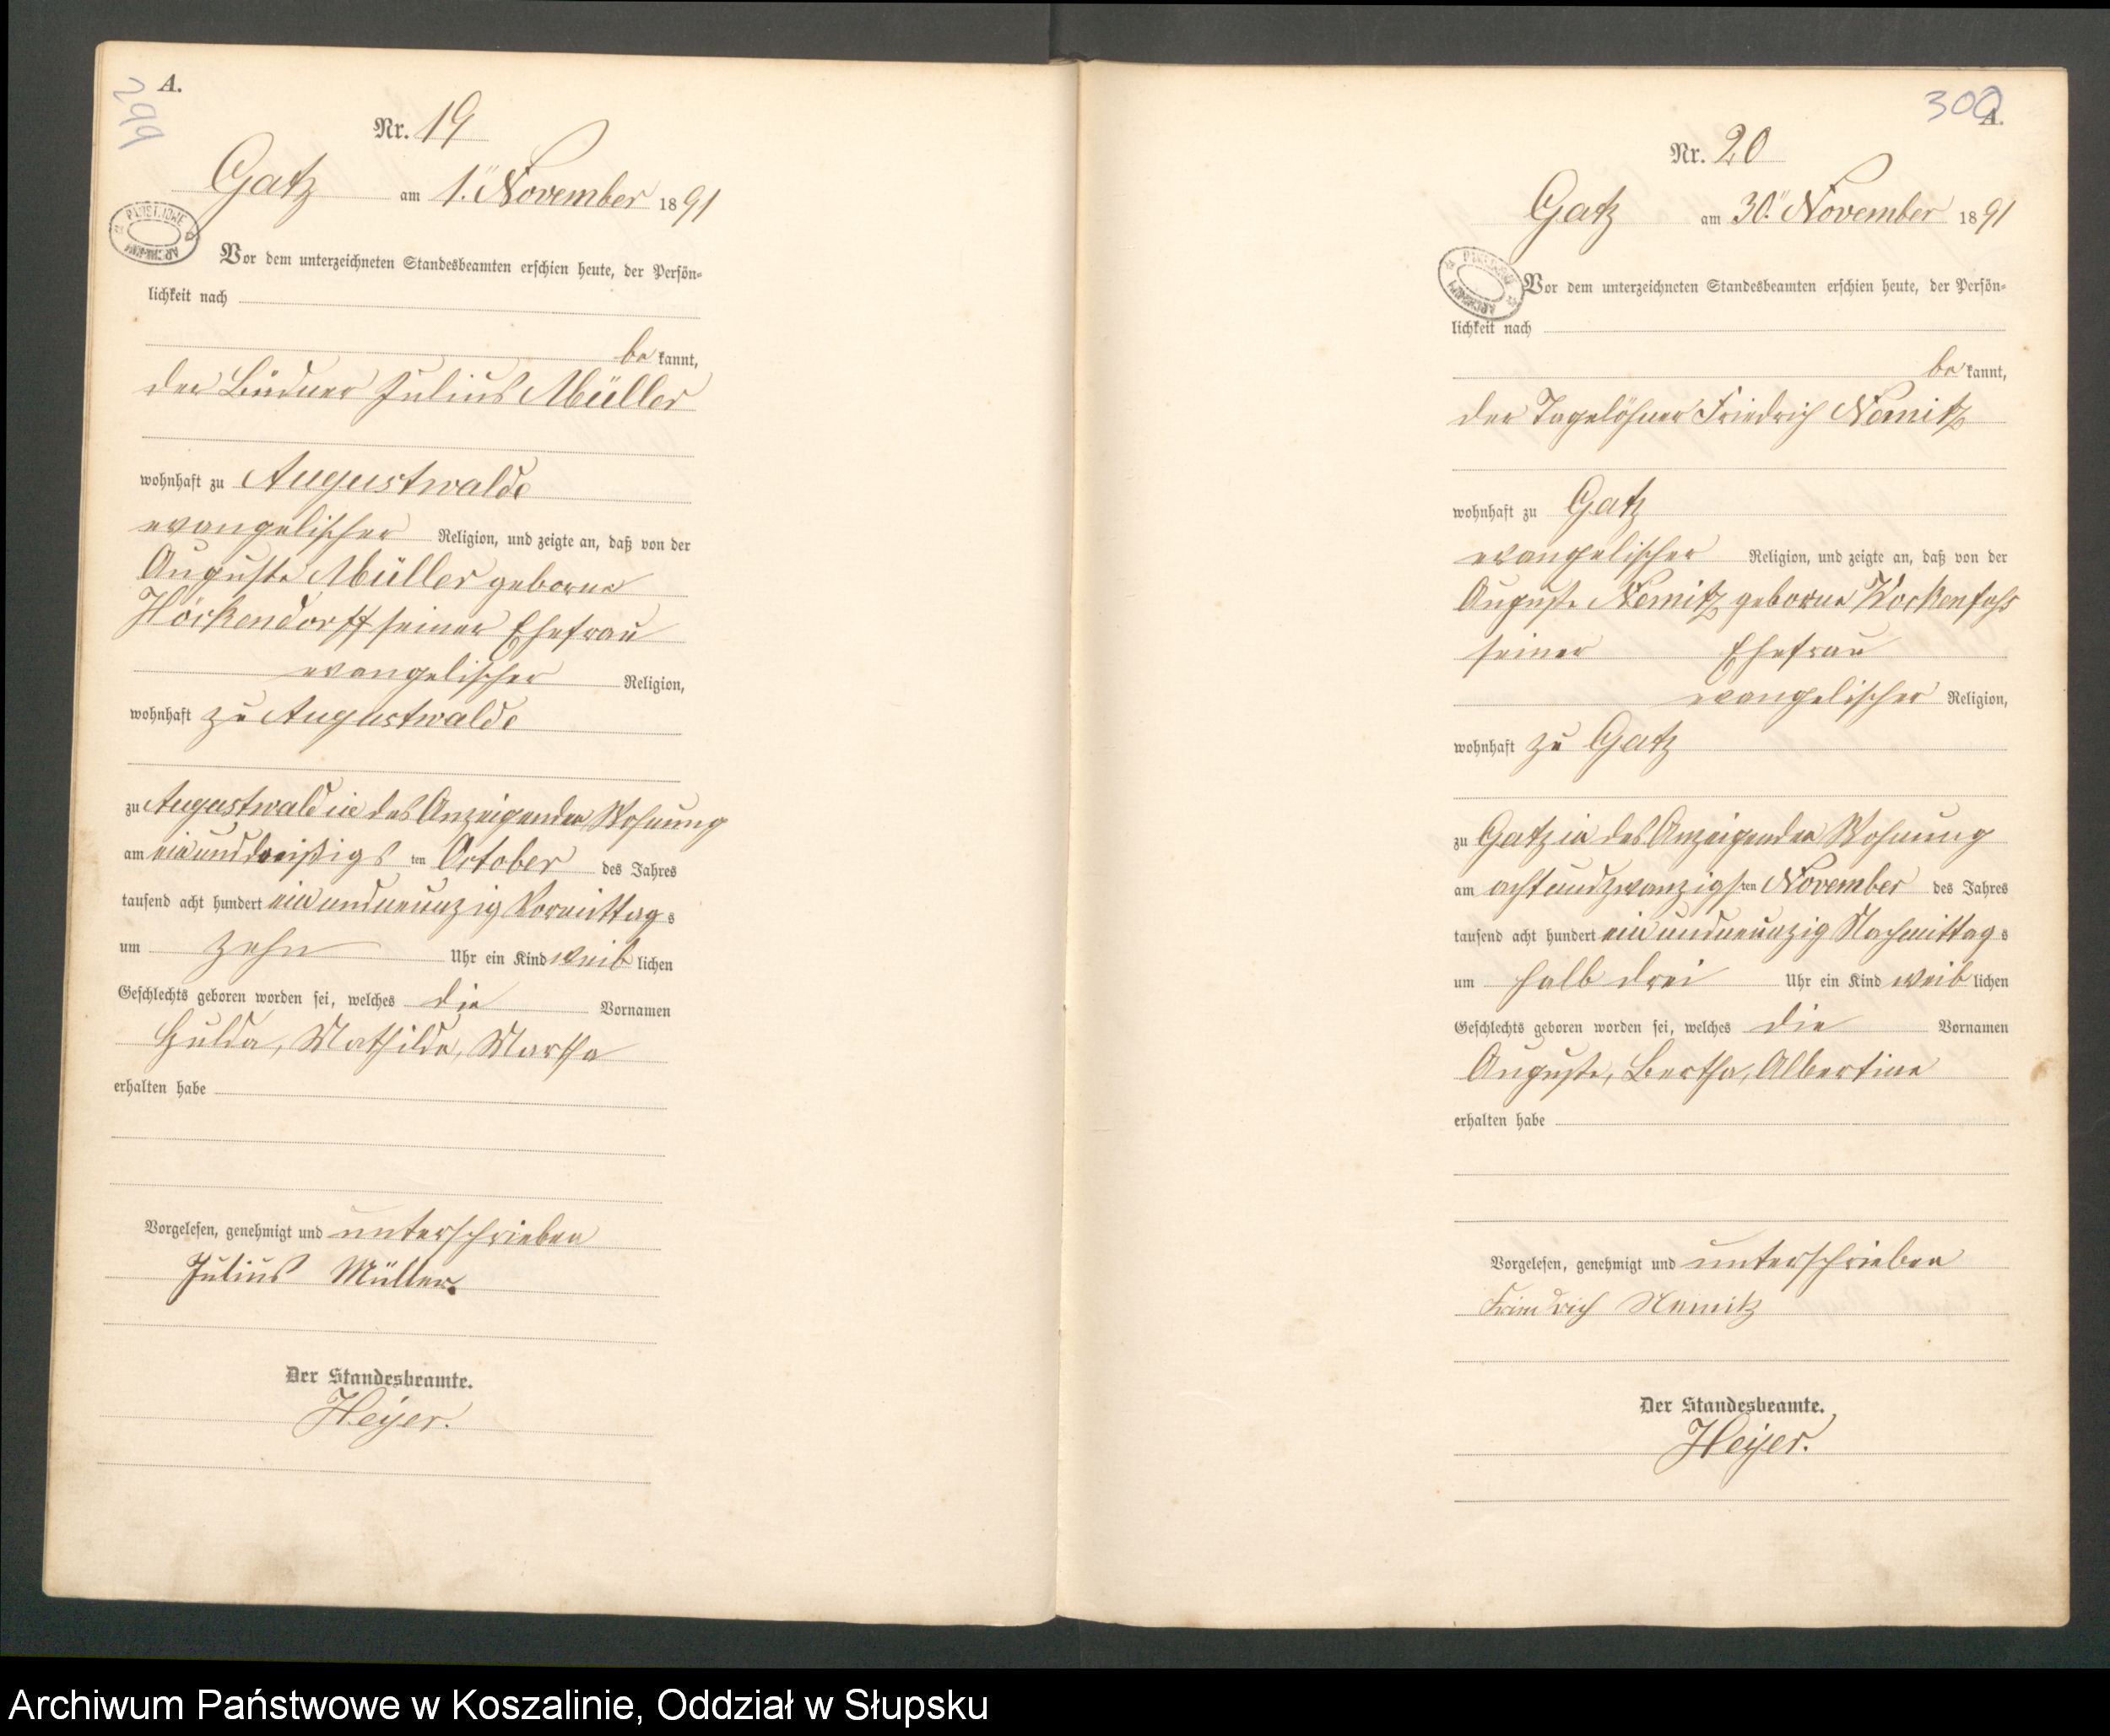 A.
299
Nr. 19
Gatz am 1.ten November 1891
PAŃSTWOWE ARCHIWUM
Vor dem unterzeichneten Standesbeamten erschien heute, der Persön-
lichkeit nach
be kannt,
der Büdner Julius Müller
wohnhaft zu Augustwalde
evangelischer Religion, und zeigte an, daß von der
Auguste Müller geborne
Höckendorff seiner Ehefrau
evangelischer Religion,
wohnhaft zu Augustwalde
zu Augustwald in des Anzeigenden Wohnung
am einunddreißigs ten October des Jahres
tausend acht hundert einundneunzig Vormittag s
um zehn Uhr ein Kind weib lichen
Geschlechts geboren worden sei, welches die Vornamen
Hulda, Mathilde, Martha
erhalten habe
Vorgelesen, genehmigt und unterschrieben
Julius Müller.
Der Standesbeamte.
Heyer.
300
A.
Nr. 20
Gatz am 30.ten November 1891
PAŃSTWOWE ARCHIWUM
Vor dem unterzeichneten Standesbeamten erschien heute, der Persön-
lichkeit nach
be kannt,
der Tagelöhner Friedrich Nemitz
wohnhaft zu Gatz
evangelischer Religion, und zeigte an, daß von der
Auguste Nemitz geborne Kockenfoss
seiner Ehefrau
evangelischer Religion,
wohnhaft zu Gatz
zu Gatz in des Anzeigenden Wohnung
am achtundzwanzigs ten November des Jahres
tausend acht hundert einundneunzig Nachmittag s
um halb drei Uhr ein Kind weib lichen
Geschlechts geboren worden sei, welches die Vornamen
Auguste, Bertha, Albertine
erhalten habe
Vorgelesen, genehmigt und unterschrieben
Friedrich Nemitz
Der Standesbeamte.
Heyer.
Archiwum Państwowe w Koszalinie, Oddział w Słupsku